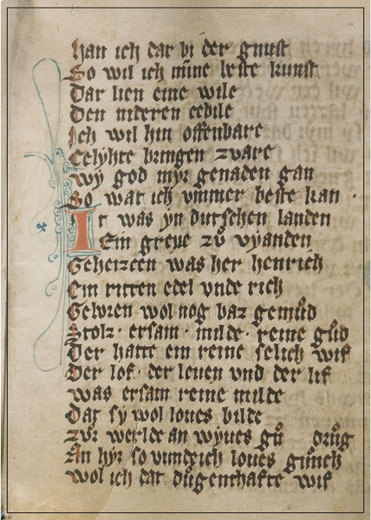 han ich dar bi der gunst
So wil ich mine beste kunst
Dar lien eine wile
Den nideren
Ich wil hin offenbare
bringen zware
Wy god myr genaden gan
So war ich ummer beste kan.
It was yn dutschen landen
Ein greue zů vyanden
Geheizzen was her henrich
Ein ritten edel vnde rich
Geboren wol nog baz gemůd
Stolz · ersam · milde · reine gůd
Der hatte ein reine selich wif
Der lof · der leuen vnd der lif
was ersam reine milde
Dar sy wol loues bilde
zůr werlde an wyues gů drůg
An hyr so loues
wol ich dar důgenthafte wif